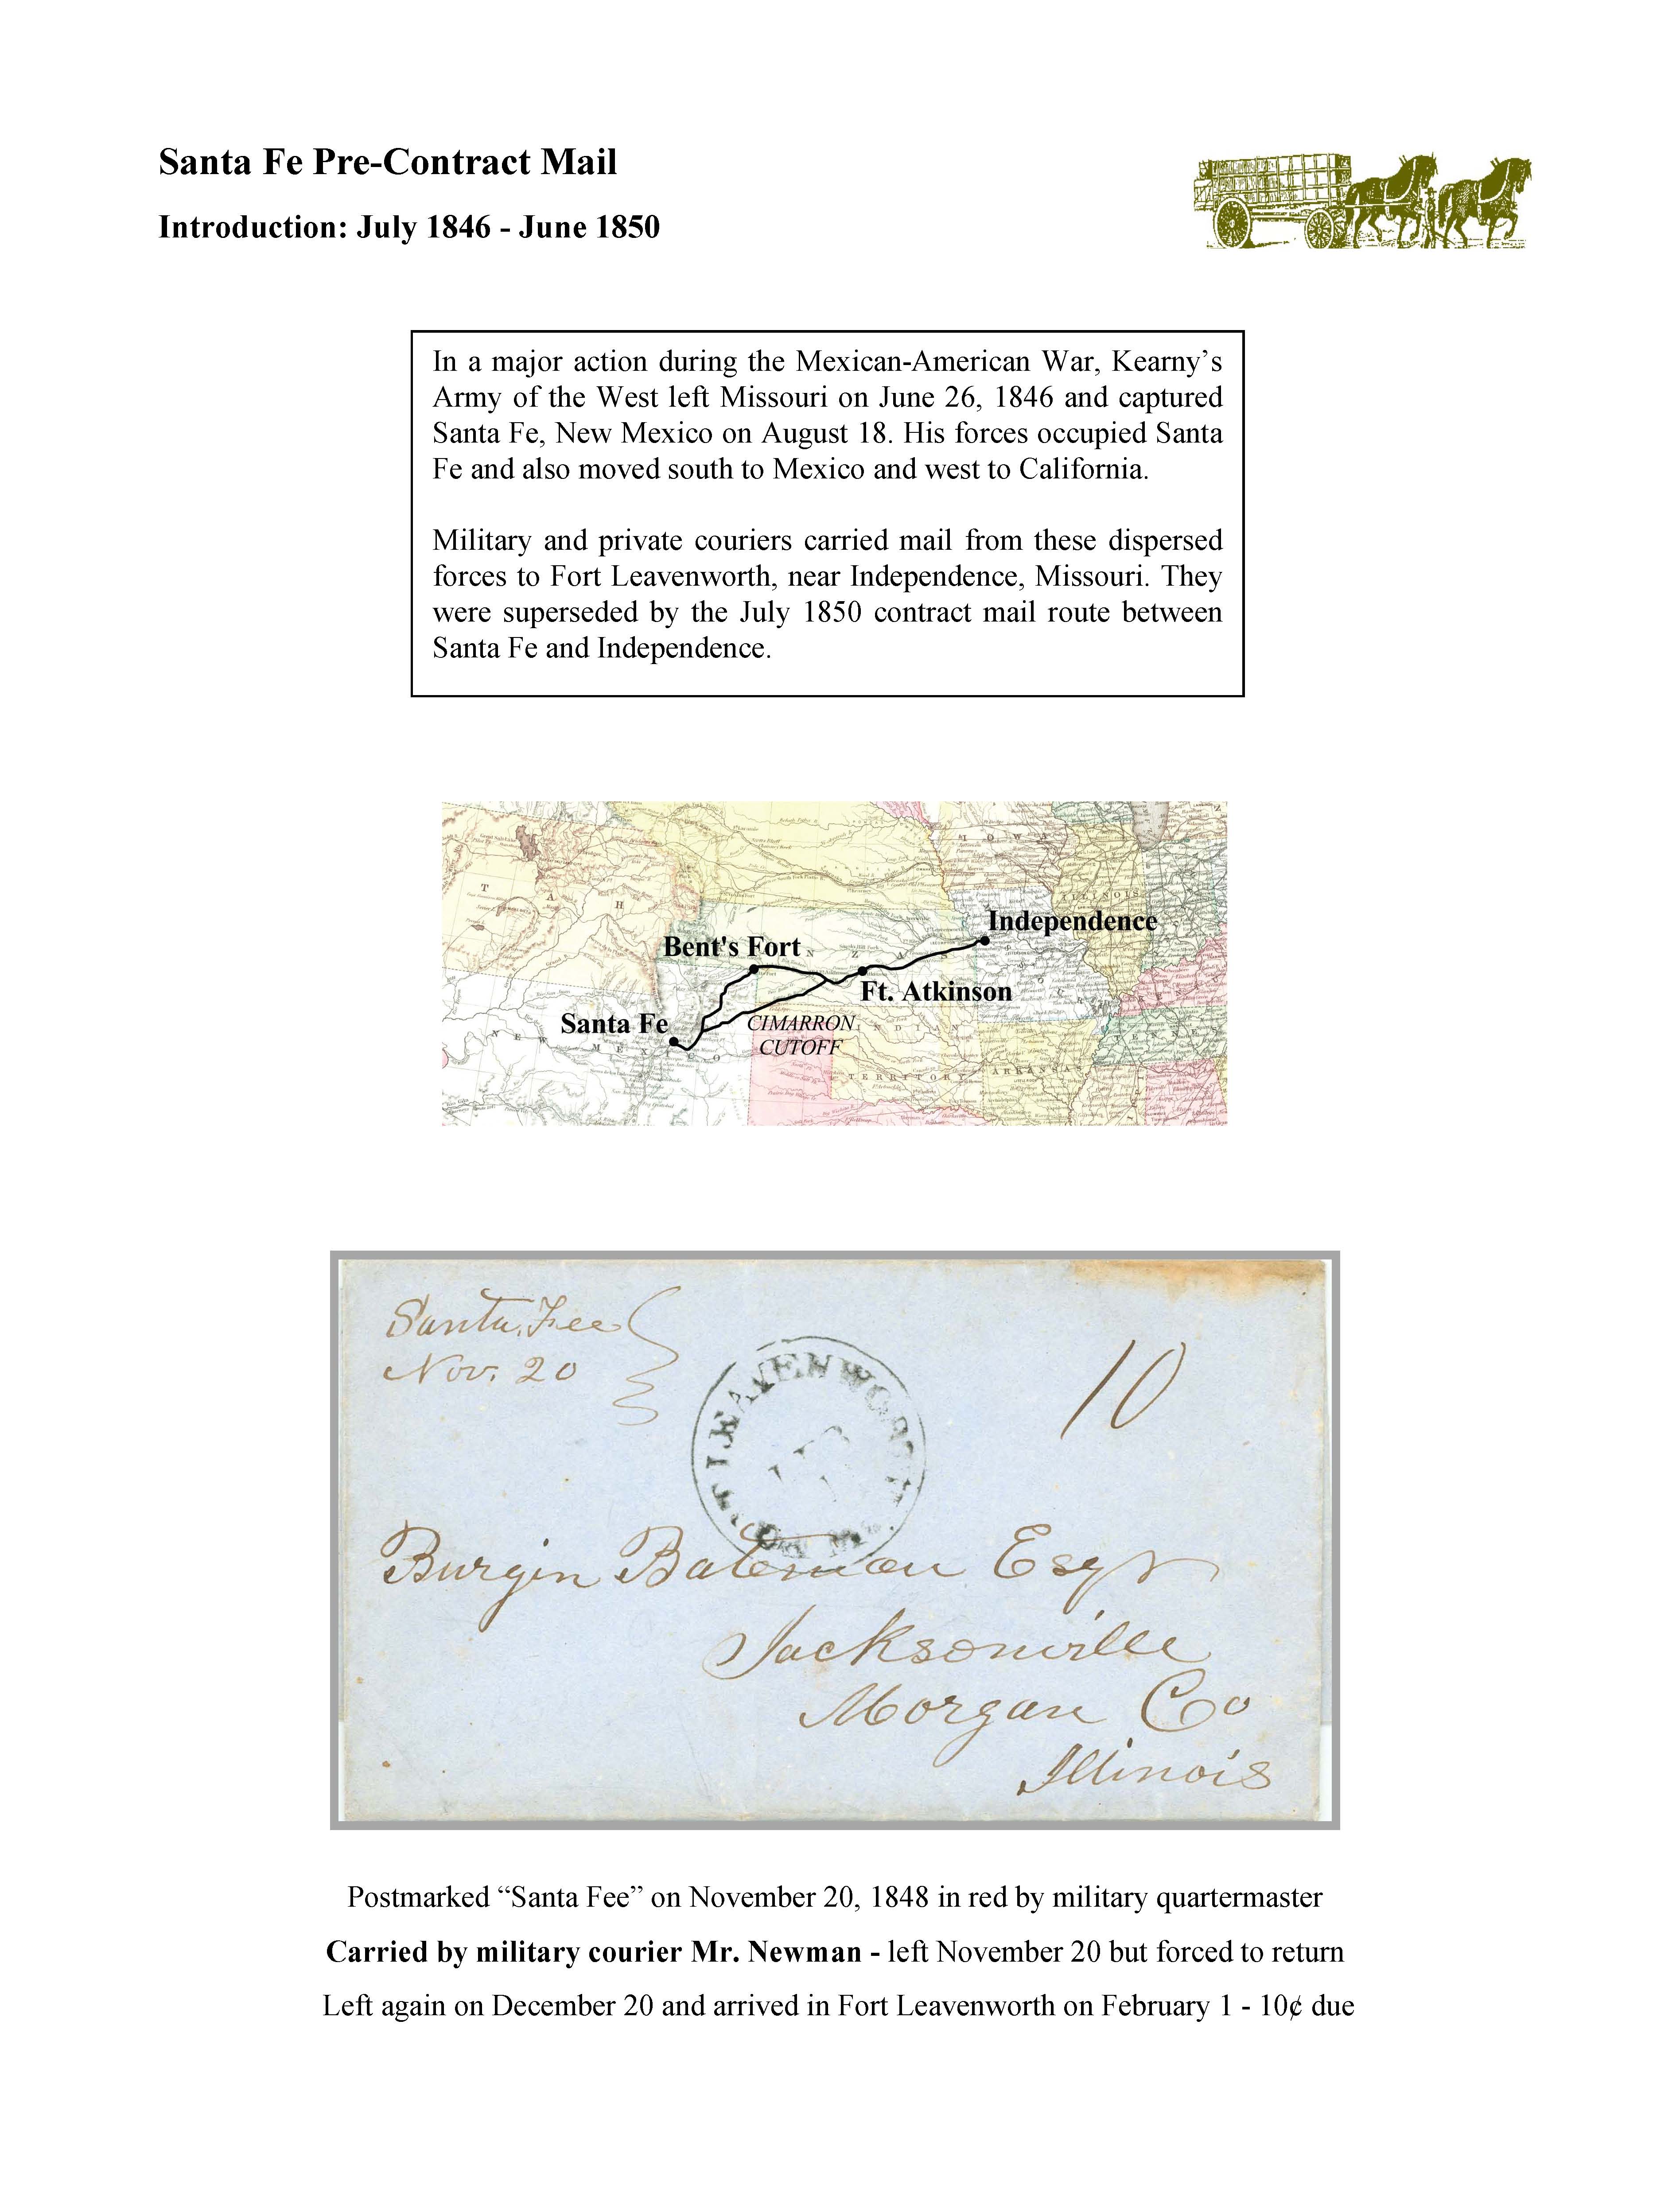 Santa Fe Pre-Contract Mail
Introduction: July 1846 - June 1850
In a major action during the Mexican-American War, Kearny’s
Army of the West left Missouri on June 26, 1846 and captured
Santa Fe, New Mexico on August 18. His forces occupied Santa
Fe and also moved south to Mexico and west to California.
Military and private couriers carried mail from these dispersed
forces to Fort Leavenworth, near Independence, Missouri. They
were superseded by the July 1850 contract mail route between
Santa Fe and Independence.
IOWA
ILLINOIS
UTAH
Independence
Bent's Fort
Ft. Atkinson
Santa Fe
CIMARRON
CUTOFF
INDIAN
NEW MEXICO
TERRITORY
ARKANSAS
Santa Fee
Nov. 20
10
LEAVENWORTH
Burgin Bateman Esqr
Jacksonville
Morgan Co
Illinois
Postmarked “Santa Fee” on November 20, 1848 in red by military quartermaster
Carried by military courier Mr. Newman - left November 20 but forced to return
Left again on December 20 and arrived in Fort Leavenworth on February 1 - 10¢ due